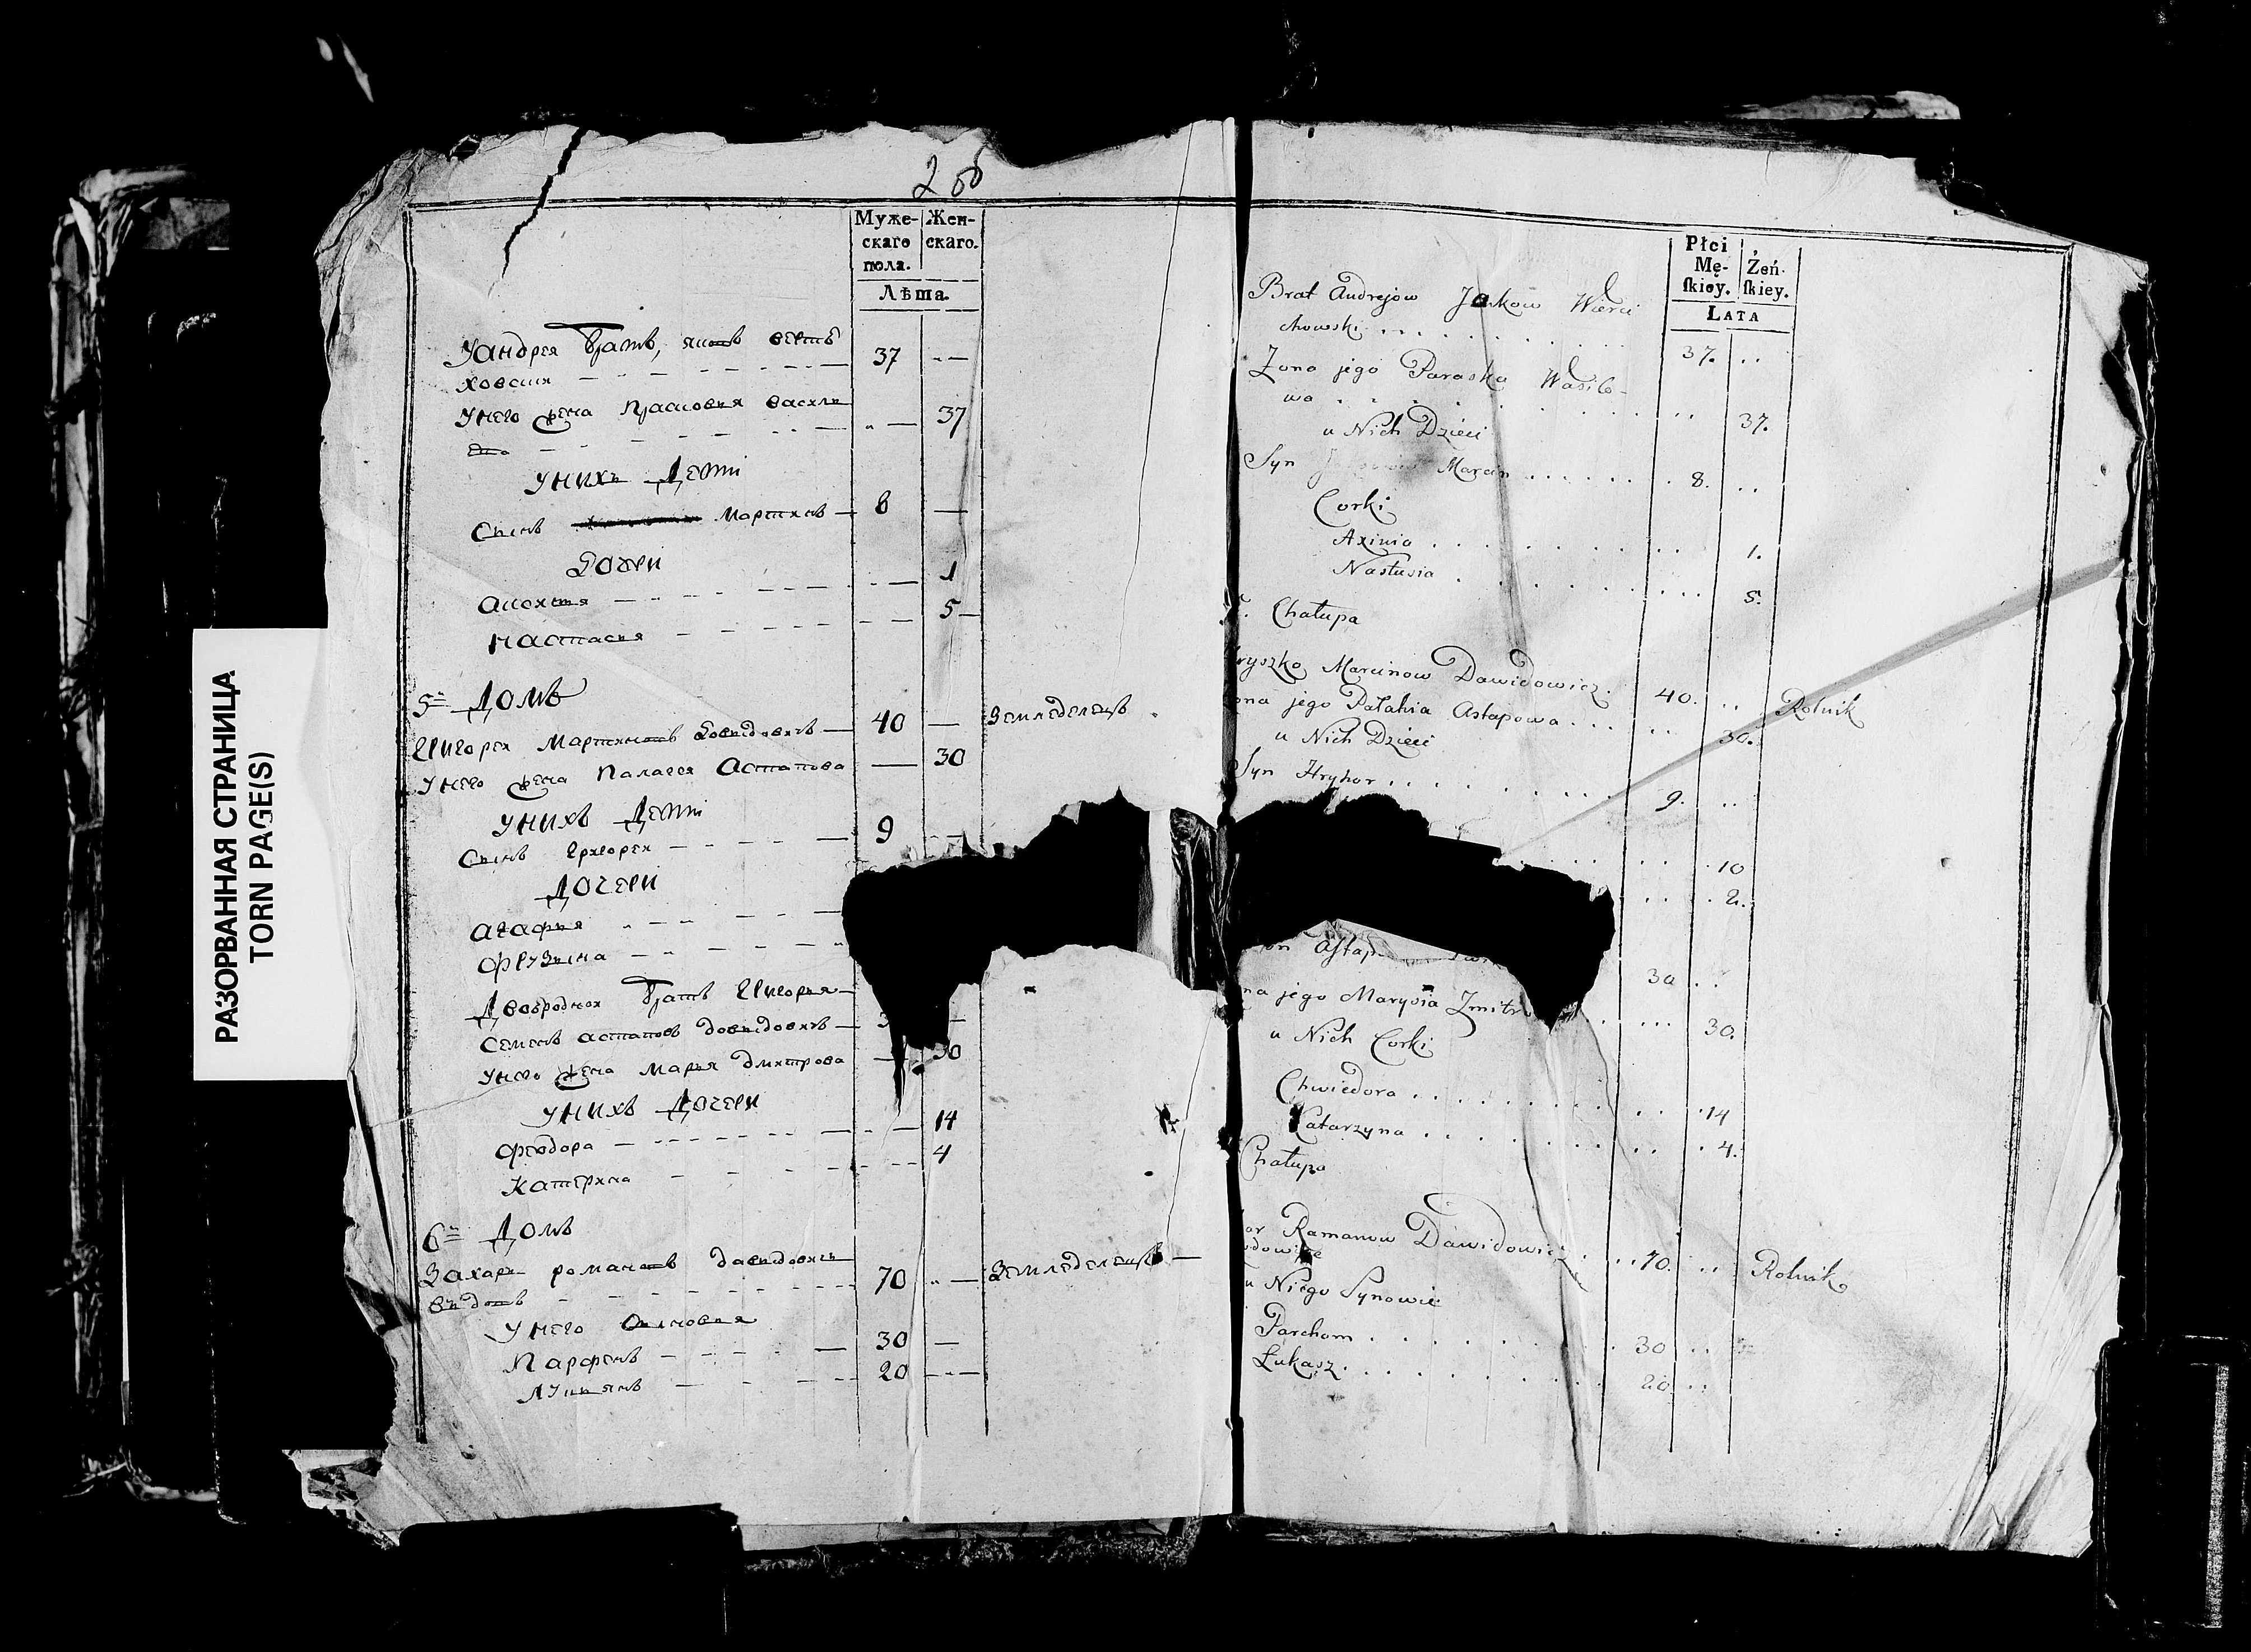 РАЗОРВАННАЯ СТРАНИЦА
TORN PAGE(S)
Муже- Жен-
скаго скаго.
пола.
Лѣта.
Уандрея братъ, яковъ верть
ховския 37
Унего жена Прасковия васили
ева 37
Унихъ Дети
Сынъ Мартинъ 8
Дочки
1
настасия 5
5й Домъ
Григорей Мартиновъ Довидовичъ 40 Земледелецъ
Унего жена Палагея Астапова 30
Унихъ Дети
Сынъ Григорей 9
Дочери
Агафия
Двоюродной братъ Григорья
Семенъ астаповъ довидовичъ
Унего жена Марья дмитрова 30
Унихъ Дочери
Феодора 14
Катерина 4
6й Домъ
Захаръ романовъ давидовичъ
вдовъ 70 Земледелецъ
Унего Сыновья
Парфенъ 30
Лукьянъ 20
Płci Żeń-
Mę- skiey.
skiey.
LATA
Brat Andrejow Jakow Wierci
chowski 37.
Żona jego Paraska Wasilo-
wa 37.
u Nich Dzieci
Syn Marcin 8.
Corki
Axinia 1.
Nastusia 5.
Chałupa
ryszko Marcinow Dawidowicz. 40. Rolnik
ona jego Pałahia Astapowa 30.
u Nich Dzieci
Syn Hryhor 9.
10
2.
Astap 30
na jego Marysia Zmitr 30.
u Nich Corki
Chwiedora 14
Katarzyna 4.
Chałupa
ar Ramanow Dawidowicz 70. Rolnik
u Niego Synowie
Parchom 30
Łukasz 20